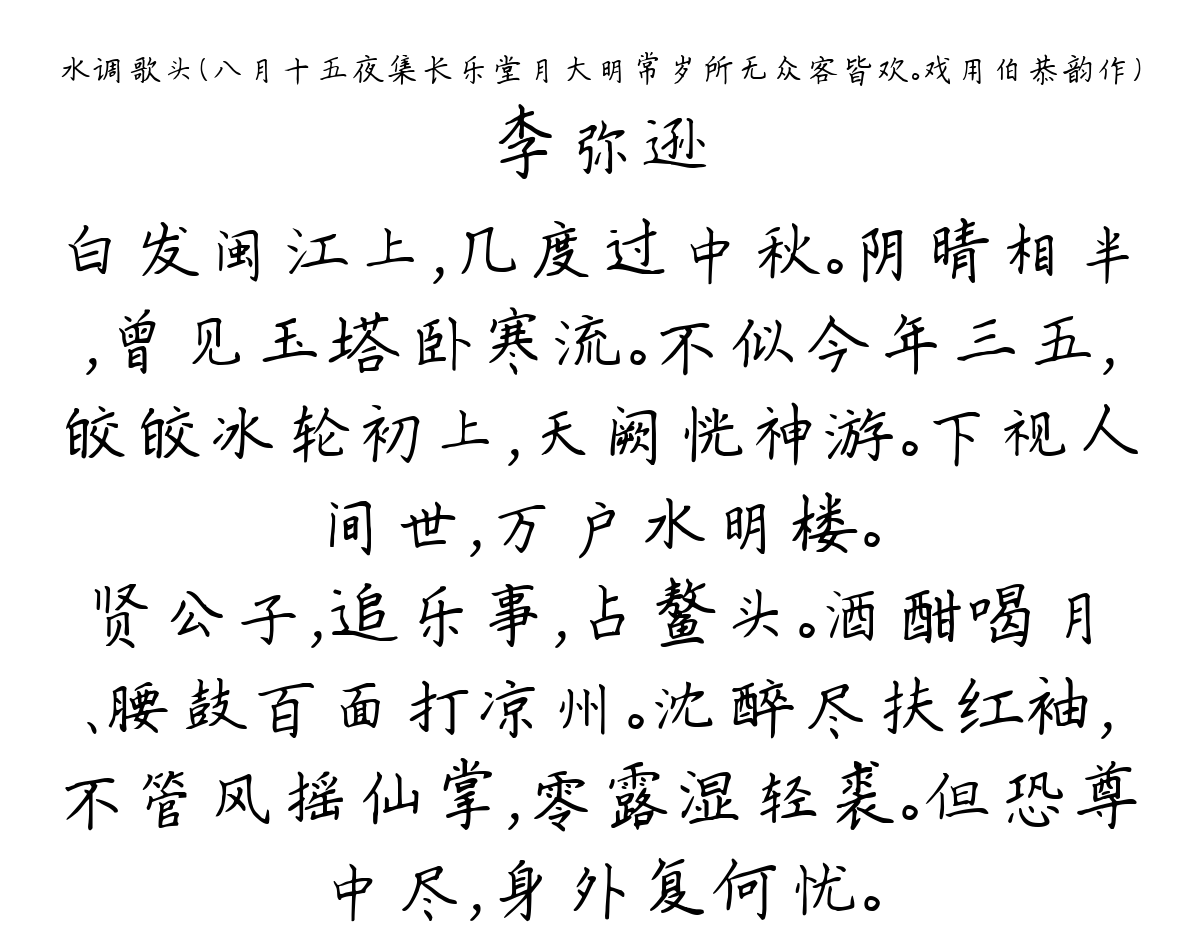 水调歌头(八月十五夜集长乐堂月大明常岁所无众客皆欢。戏用伯恭韵作)
李弥逊
白发闽江上,几度过中秋。阴晴相半
,曾见玉塔卧寒流。不似今年三五,
皎皎冰轮初上,天阙恍神游。下视人
间世,万户水明楼。
贤公子,追乐事,占鳌头。酒酣喝月
、腰鼓百面打凉州。沈醉尽扶红袖,
不管风摇仙掌,零露湿轻裘。但恐尊
中尽,身外复何忧。